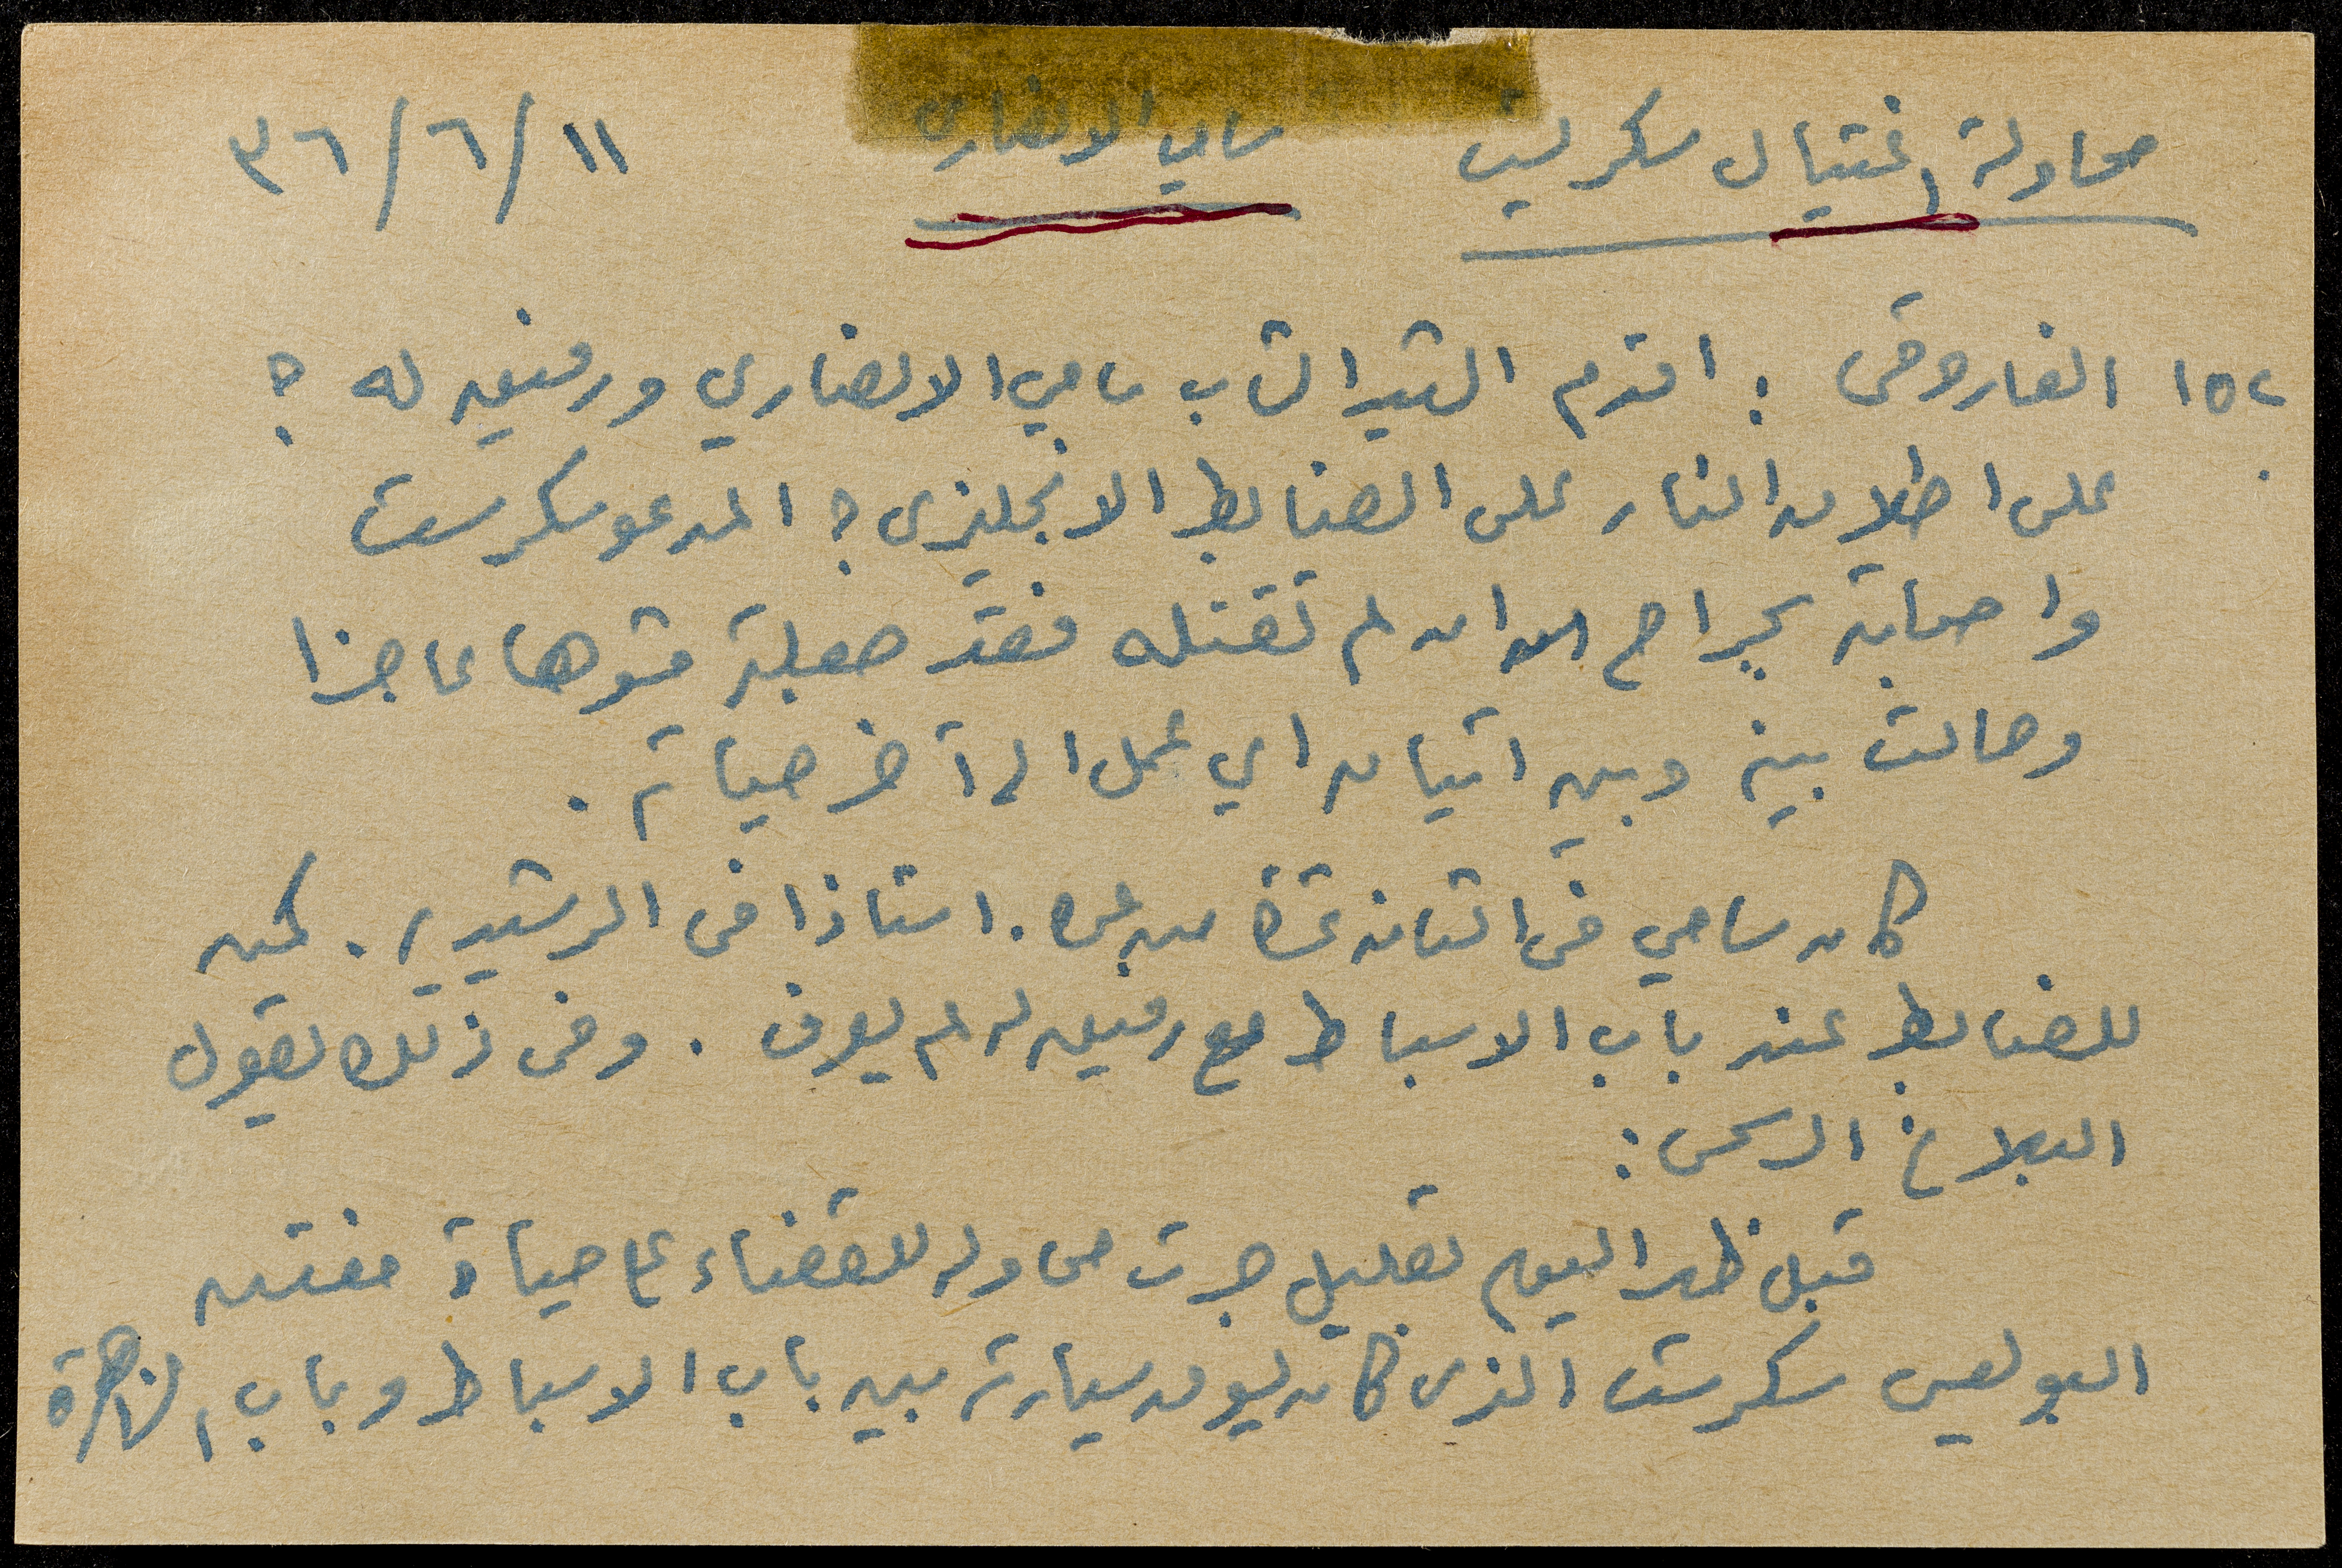 محاولة اغتيال سكريست سامي الانصاري ١١/٦/٣٦
١٥٢ الفاروقي : اقدم الشهيد الشاب سامي الانصاري ورفيق له ؟
على اطلاق النار على الضابط الانجليزي ؟ المدعو سكرست
واصابته بجراح ان لم تقتله فقد جعلته مشوها عاجزا
وحالت بينه وبين اتيان اي عمل الى آخر حياته .
كان سامي في الثامنة عشرة من عمره . استاذا في الرشيدية . كمن
للضابط عند باب الاسباط مع رفيق له لم يعرف . وفي ذلك يقول
البلاغ الرسمي :
قبل ظهر اليوم بقليل جرت محاولة للقضاء على حياة مفتش
البوليس سكرست الذي كان يسوق سيارته بين باب الاسباط وباب الزاهرة